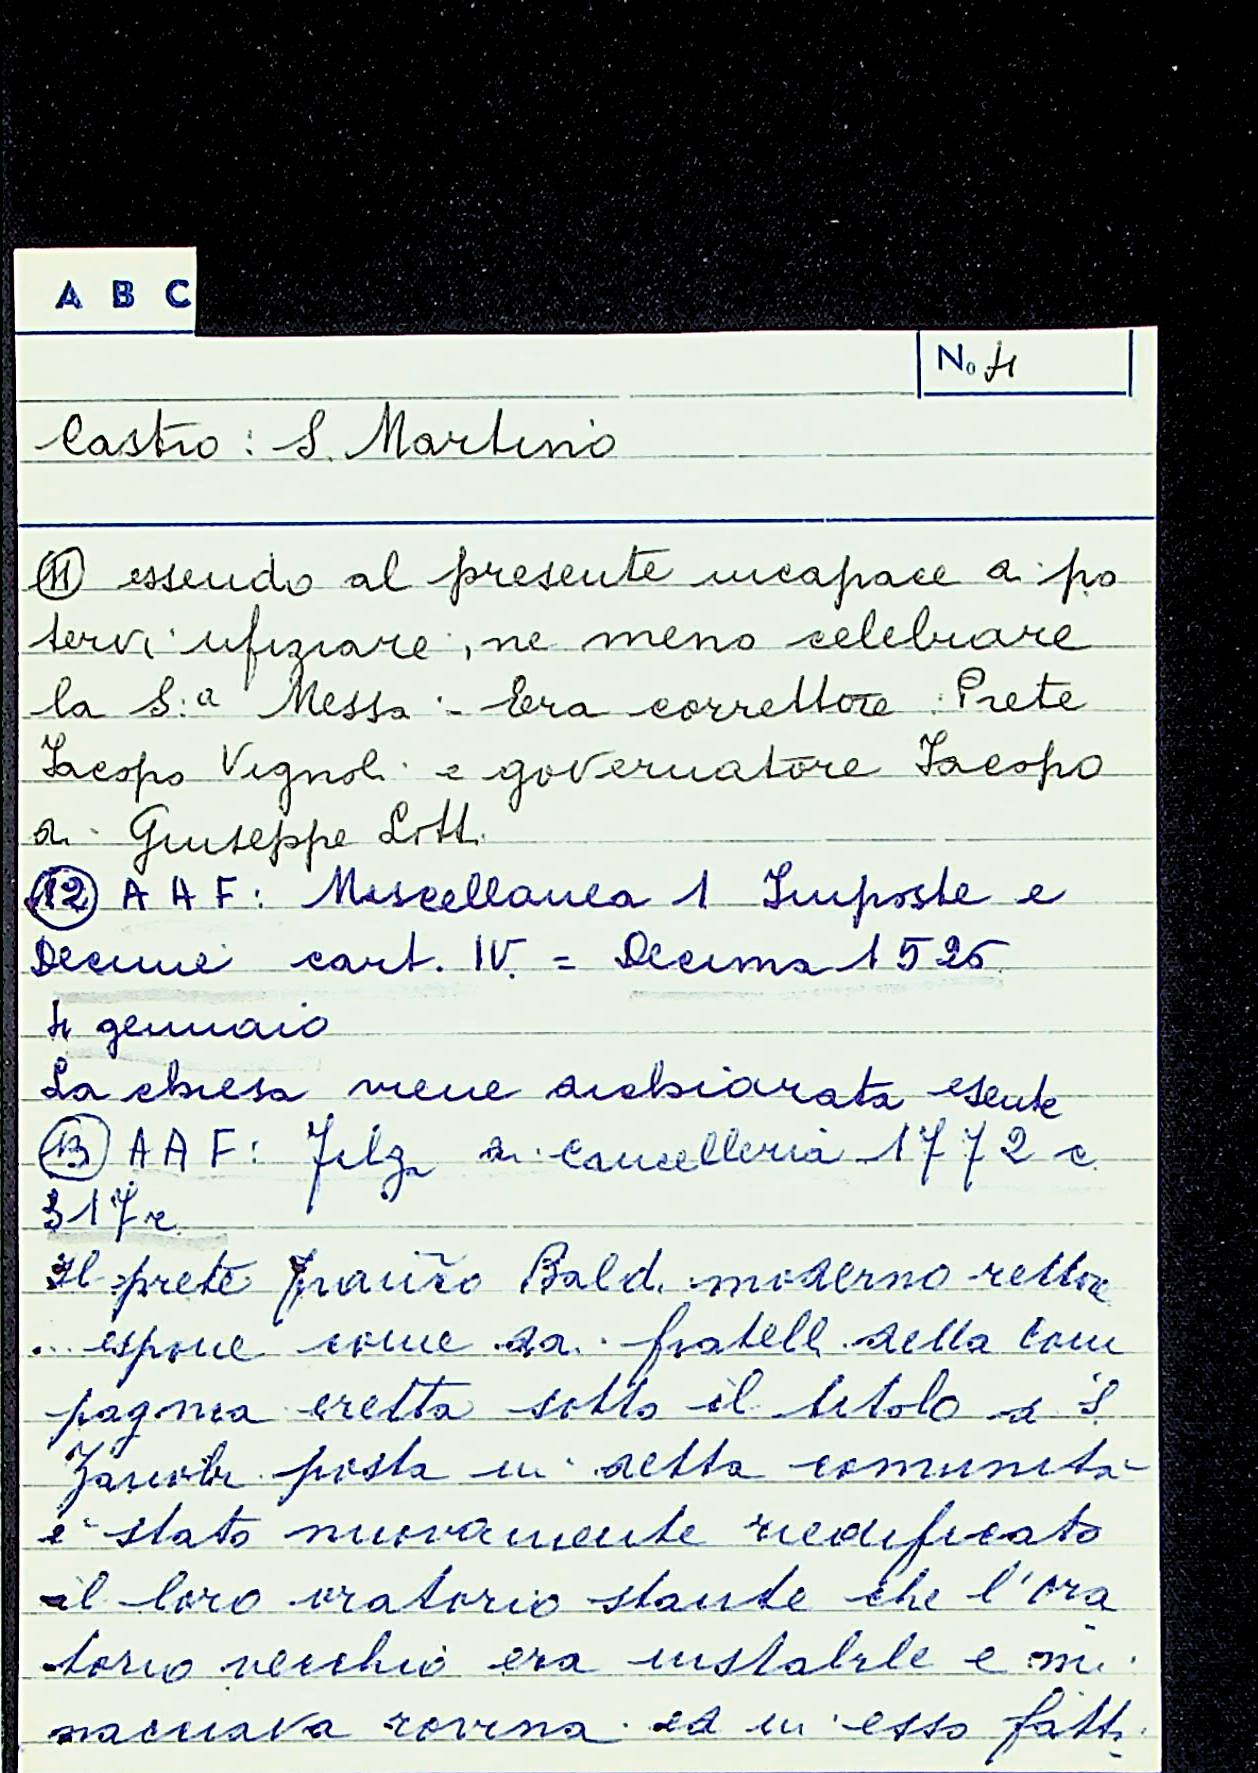 A B C
No 4
Castro: S. Martino
11 essendo al presente incapace di po
tervi ufiziare, ne meno celebrare
la S:a Messa - Era correttore Prete
Iacopo Vignoli e governatore Iacopo
di Giuseppe Lotti
12 A A F: Miscellanea 1 Imposte e
Decime cart. IV. = Decima 1526
4 gennaio
La chiesa viene dichiarata esente
13 A A F: Filza di Cancelleria 1772 c
317r.
Il prete Franco Baldi moderno rettore
... espone come da fratelli della Com
pagnia eretta sotto il titolo di S.
Zanobi posta in detta comunità
è stato nuovamente riedificato
il loro oratorio stante che l'ora
torio vecchio era instabile e mi
nacciava rovina ed in esso fatti